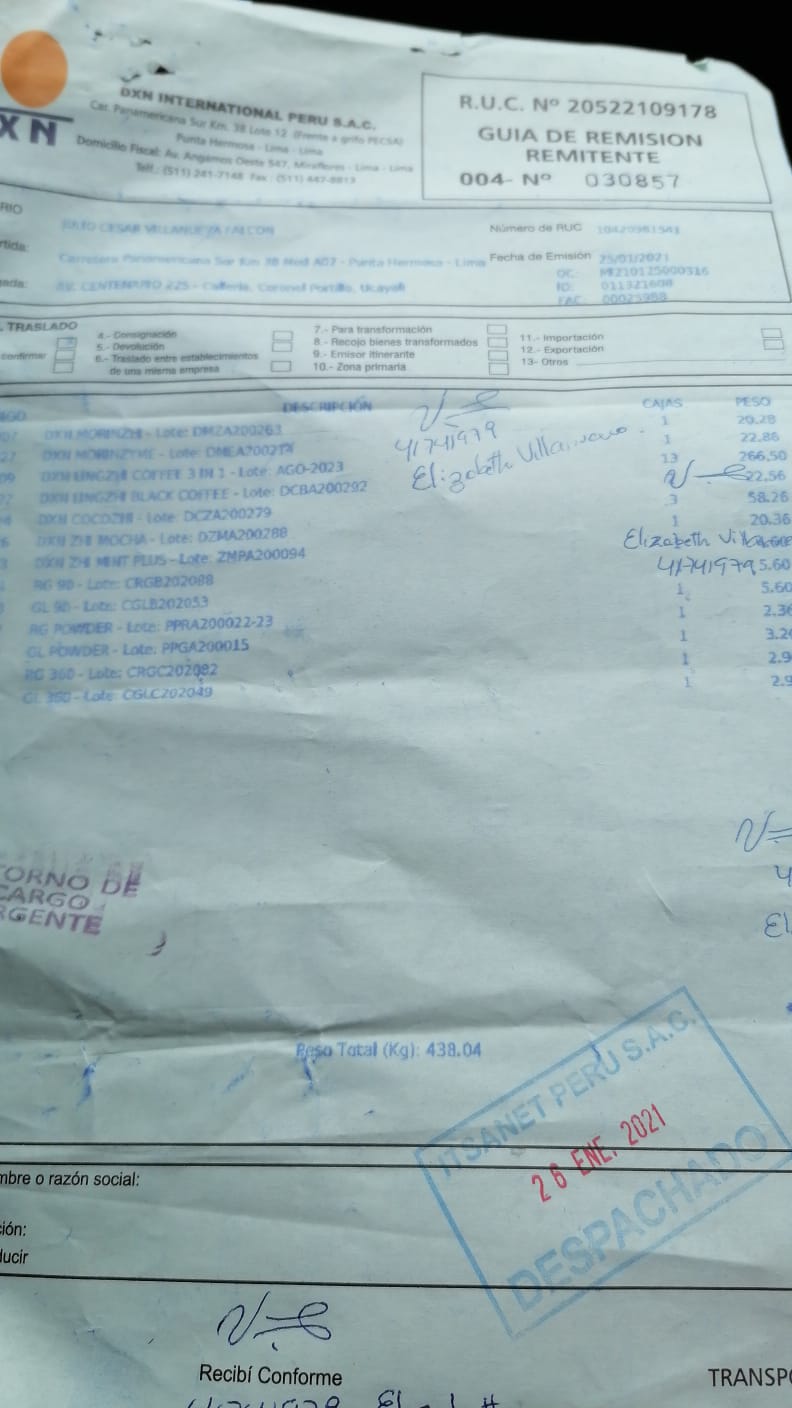 DXN INTERNATIONAL PERU S.A.C.
Car. Panamericana Sur Km. 38 Lote 12 (Frente a grifo PECSA)
Punta Hermosa - Lima - Lima
Domicilio Fiscal: Av. Angamos Oeste 547, Miraflores - Lima - Lima
Telf.: (511) 241-7148 Fax: (511) 447-8813
XN
R.U.C. Nº 20522109178
GUIA DE REMISION
REMITENTE
004- Nº 030857
RIO
JULIO CESAR VILLANUEVA FALCON
Número de RUC
rtida:
Carretera Panamericana Sur Km 38 Mod A07 - Punta Hermosa - Lima
Fecha de Emisión 25/01/2021
OC: PE210125000316
gada:
AV. CENTENARIO 225 - Calleria, Coronel Portillo, Ucayali
ID: 011321608
FAC: 00025988
TRASLADO
confirmar
4.- Consignación
5.- Devolución
6.- Traslado entre establecimientos
de una misma empresa
7.- Para transformación
8.- Recojo bienes transformados
9.- Emisor itinerante
10.- Zona primaria
11.- Importación
12.- Exportación
13- Otros
DESCRIPCIÓN CAJAS PESO
DXN MORINZHI - Lote: DMZA200263 1 20.28
DXN MORINZYME - Lote: 1 22.86
DXN LINGZHI COFFEE 3 IN 1 - Lote: AGO-2023 13 266.50
DXN LINGZHI BLACK COFFEE - Lote: DCBA200292 22.56
DXN COCOZHI - Lote: DCZA200279 3 58.26
DXN ZHI MOCHA - Lote: DZMA200288 1 20.36
DXN ZHI MINT PLUS - Lote: ZMPA200094 5.60
RG 90 - Lote: CRGB202088 1 5.60
GL 90 - Lote: CGLB202053 1 2.36
RG POWDER - Lote: PPRA200022-23 1 3.20
GL POWDER - Lote: PPGA200015 1 2.9
RG 360 - Lote: CRGC202082 1 2.9
GL 360 - Lote: CGLC202049
41741979
Elizabeth Villanueva
Elizabeth Villanueva
41741979
4
El
TORNO DE
CARGO
RGENTE
Peso Total (Kg): 438.04
ITSANET PERU S.A.C.
26 ENE. 2021
DESPACHADO
mbre o razón social:
ción:
ducir
Recibí Conforme
TRANSPO
41741979